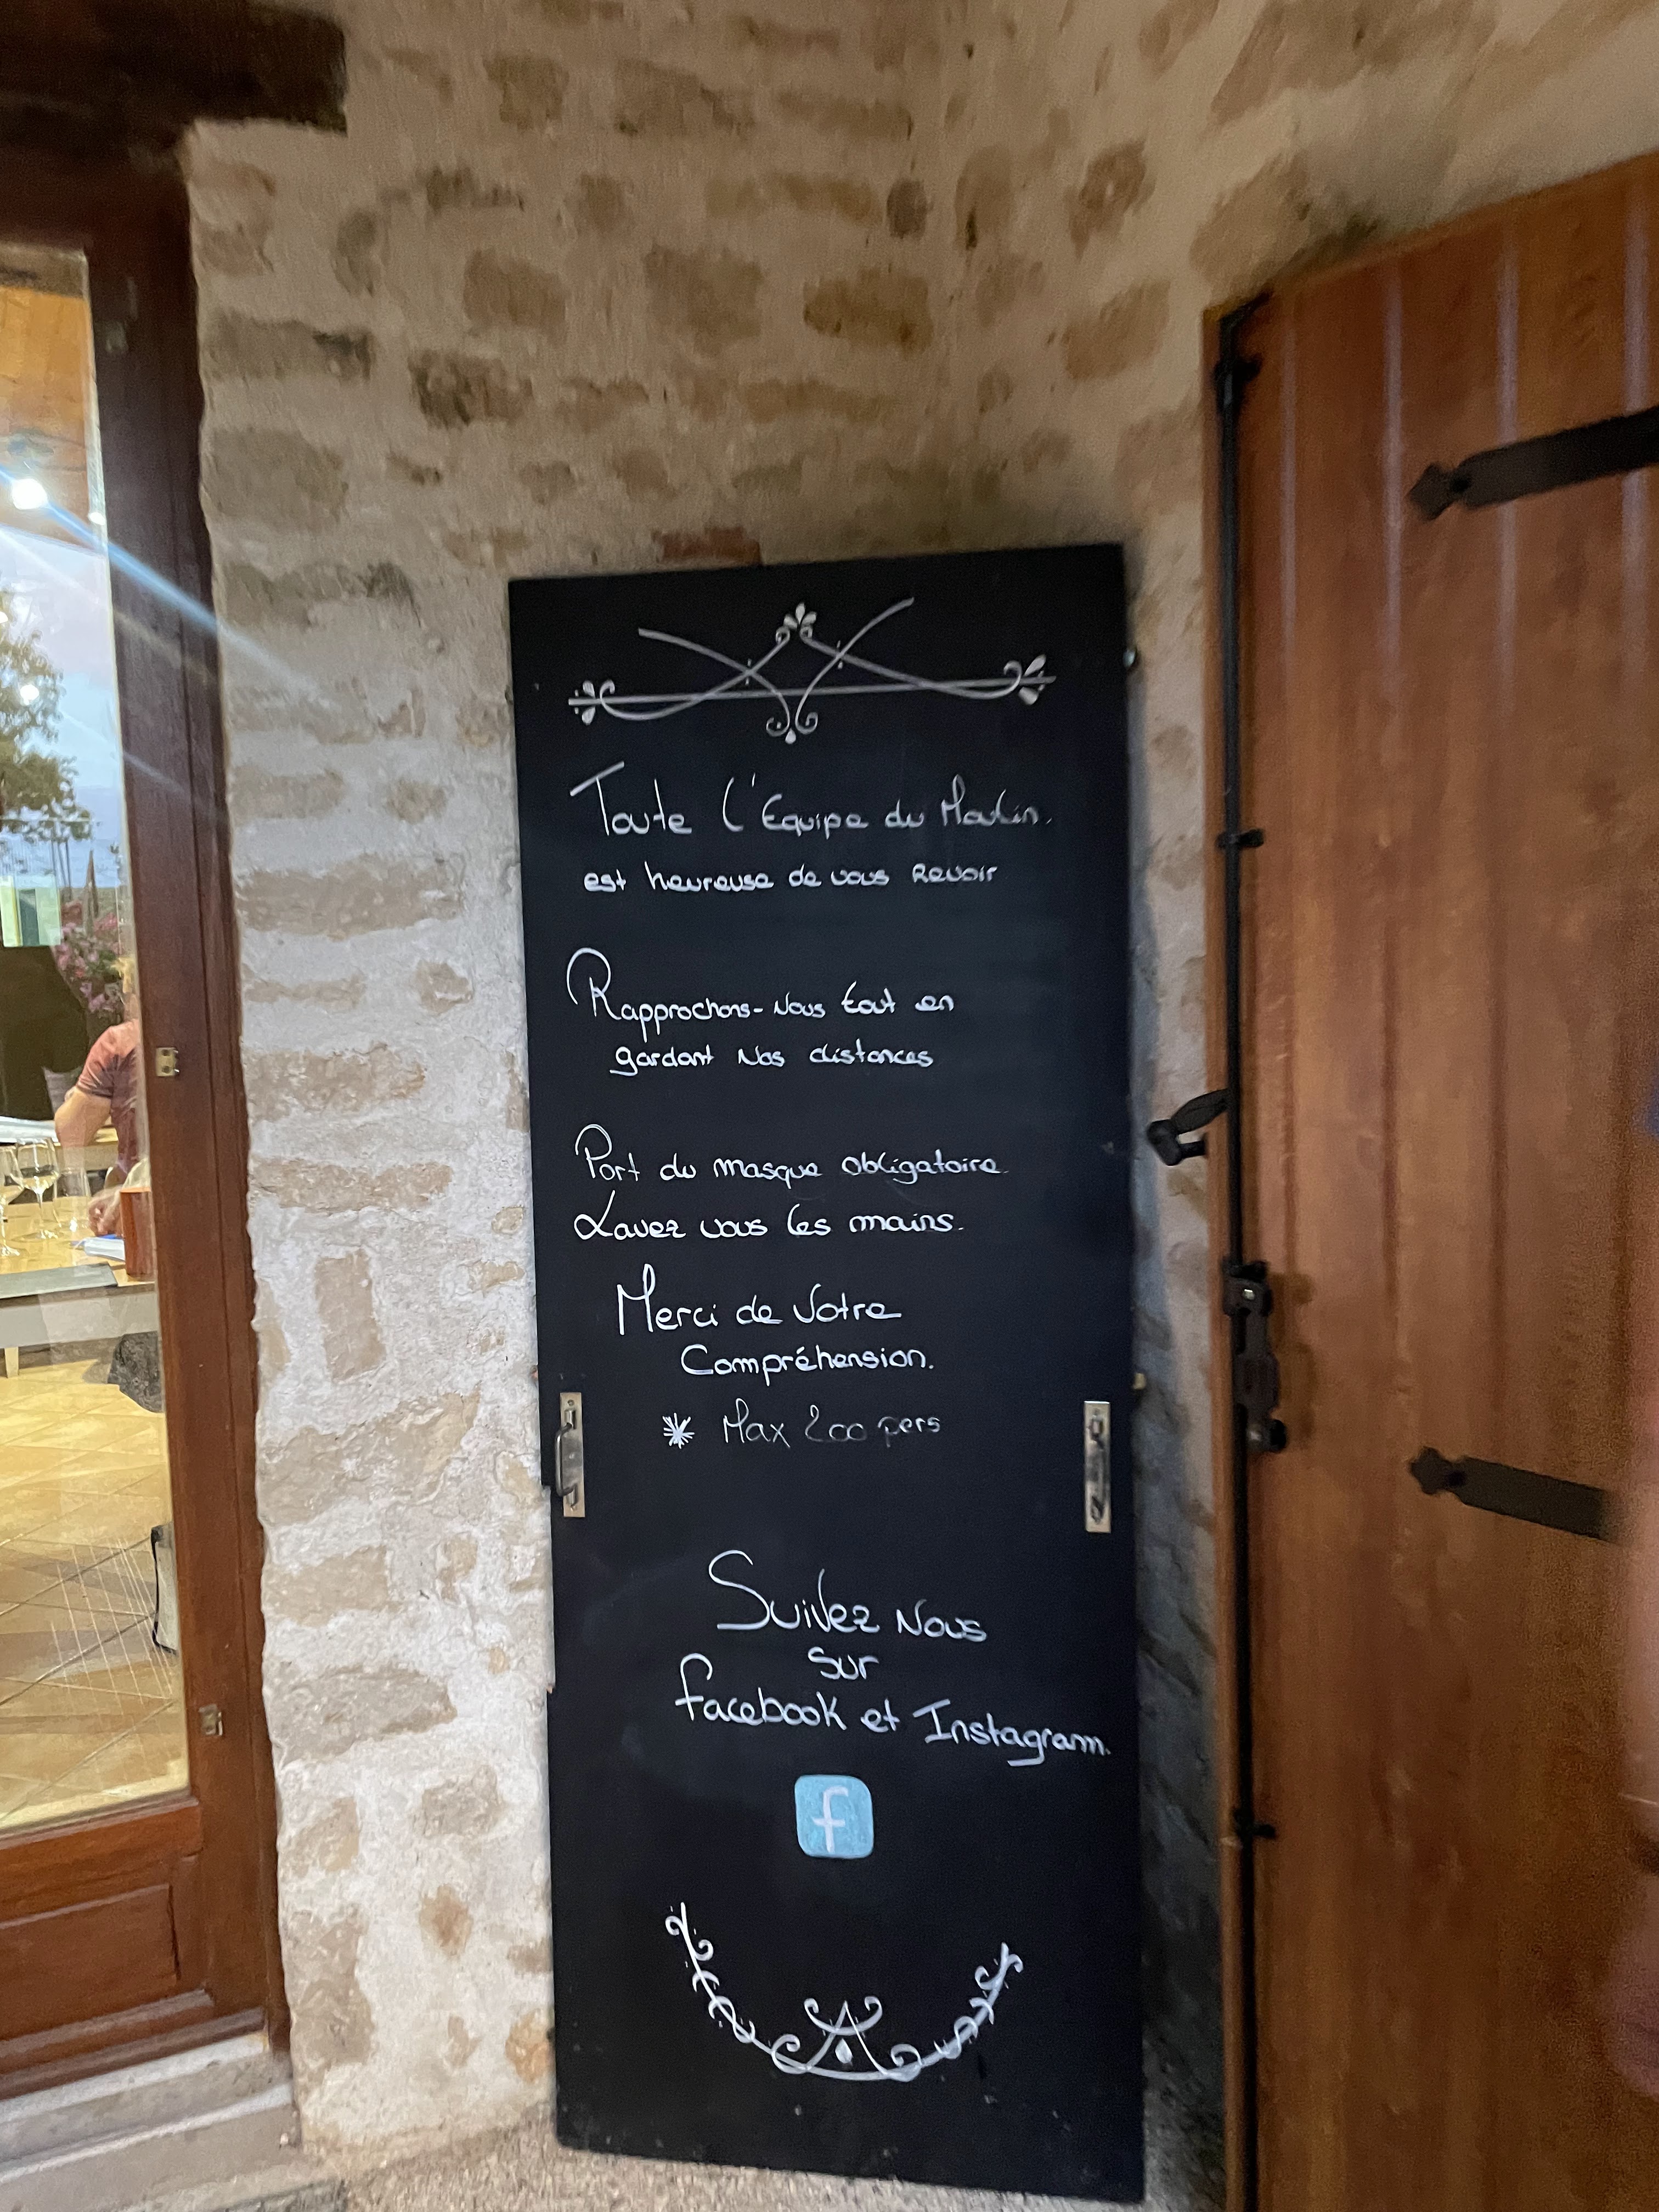 Toute l'Equipe du Moulin.
est heureuse de vous Revoir
Rapprochons-Nous tout en
gardant Nos distances
Port du masque obligatoire.
Lavez vous les mains.
Merci de Votre
Compréhension.
* Max 200 pers
Suivez Nous
sur
facebook et Instagram.
f